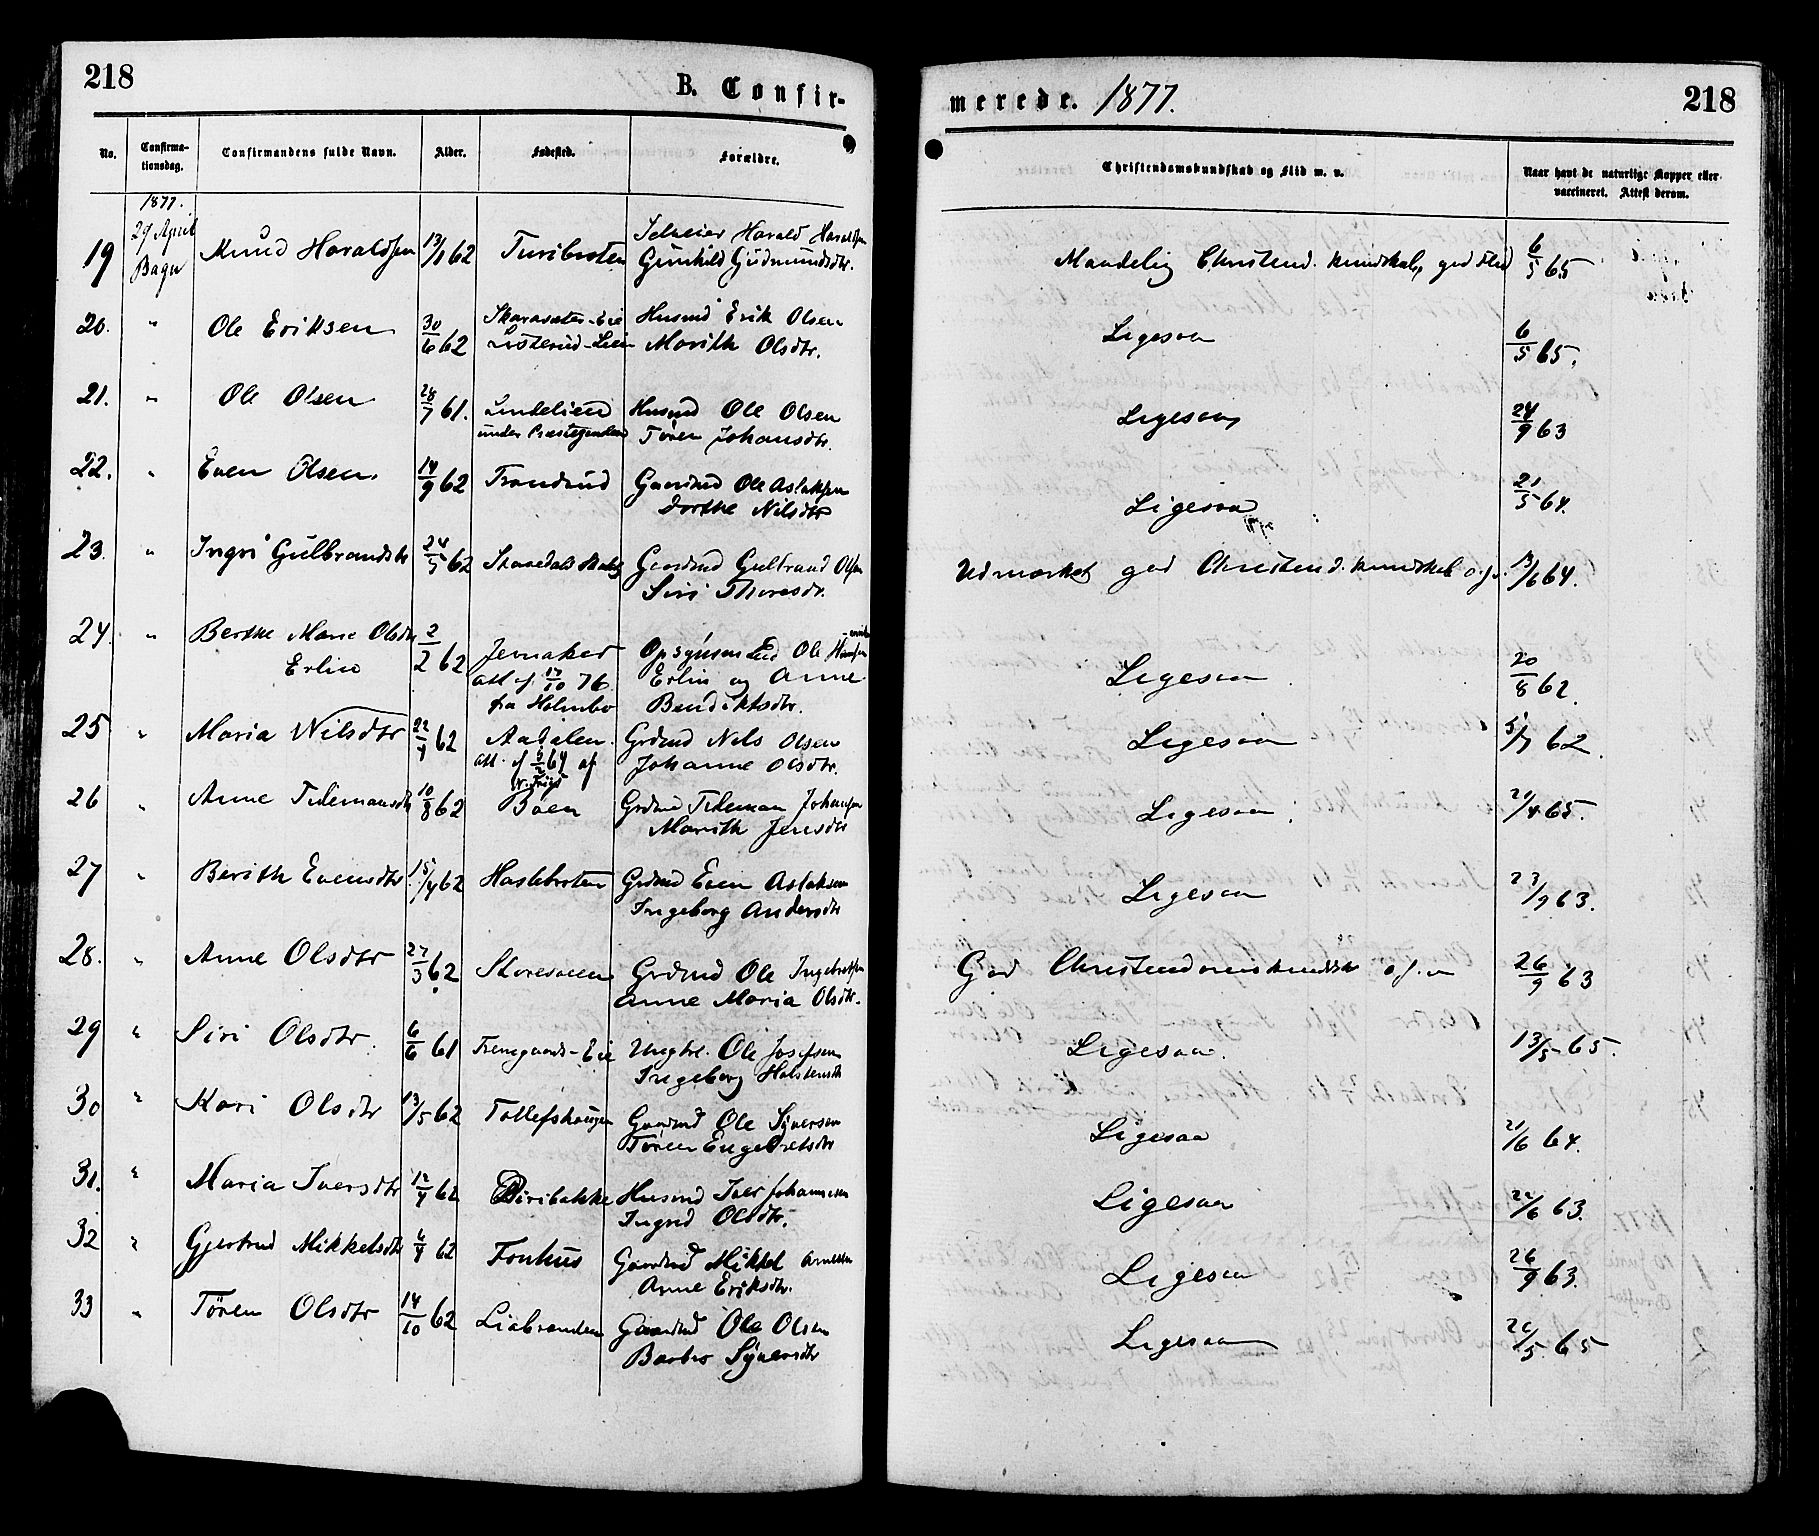 218
B. Confir-
merede. 1877.
218
No.
Confirma-
tionsdag.
Confirmandens fulde Navn.
Alder.
Fødested.
Forældre.
Christendomskundskab og Flid m. v.
Naar havt de naturlige Kopper eller
vaccineret. Attest derom.
1877.
29 April
Bagn
19 Knud Haraldsen 13/1 62 Turibroten Selveier Harald Haraldsen
Gunhild Gudmundsdtr.
Maadelig Christend. kundskab, god Flid 6/5 65
20. " Ole Eriksen 30/6 62 Husmd Erik Olsen
Marith Olsdtr.
Ligesaa 6/5 65.
21. " Ole Olsen 28/7 61. Lindelien Husmd Ole Olsen
under Præstegaarden Tøren Johansdtr.
Ligesaa 24/9 63
22. " Even Olsen. 14/9 62 Trondrud Gaardmd Ole Aslaksen
Dorthe Nilsdtr
Ligesaa 21/5 64.
23. " Ingri Gulbrandsdtr 24/5 62 Gaardmd Gulbrand Olsen
Siri Thoresdr.
Udmærket god Christend. kundskab o.s.v. 13/6 64.
24. " Berthe Marie Olsdtr 2/2 62 Jevnaker Ole Hansen
Erlin att. af 17/10 76 Erlin og Anne
fra Holmbo Bendiktsdtr.
Ligesaa 20/8 62.
25 " Maria Nilsdtr 22/4 62 Aadalen Grdmd Nils Olsen
att. af 5/2 64 af Johanne Olsdtr.
Ligesaa 5/7 62.
26 " Anne Tidemansdtr 10/8 62 Bøen Grdmd Tideman Johansen
Marith Jensdtr
Ligesaa 21/4 65.
27 " Berith Evensdtr 15/4 62 Haslebroten Grdmd Even Aslaksen
Ingeborg Andersdtr
Ligesaa 23/9 63.
28. " Anne Olsdtr 27/3 62 Storesveen Grdmd Ole Ingebretsen
Anne Maria Olsdtr.
God Christendomskundskab o.s.v 26/9 63
29 " Siri Olsdtr 6/6 61 Ungkl. Ole Josefsen
Ingeborg Halstensdtr
Ligesaa. 13/5 65.
30 " Kari Olsdtr 13/5 62 Tollefshaugen Gaardmd Ole Syversen
Tøren Engebretsdtr
Ligesaa 21/6 64.
31. " Maria Iversdtr 12/4 62 Biribakke Husmd Iver Johannesen
Ingrid Olsdtr.
Ligesaa 22/6 63.
32 " Gjertrud Mikkelsdtr 6/4 62 Fonhus Gaardmd Mikkel Arnesen
Anne Eriksdtr.
Ligesaa 26/9 63.
33 " Tøren Olsdtr 14/10 62 Liabraaten Gaardmd Ole Olsen
Barbro Syversdtr
Ligesaa 26/5 65